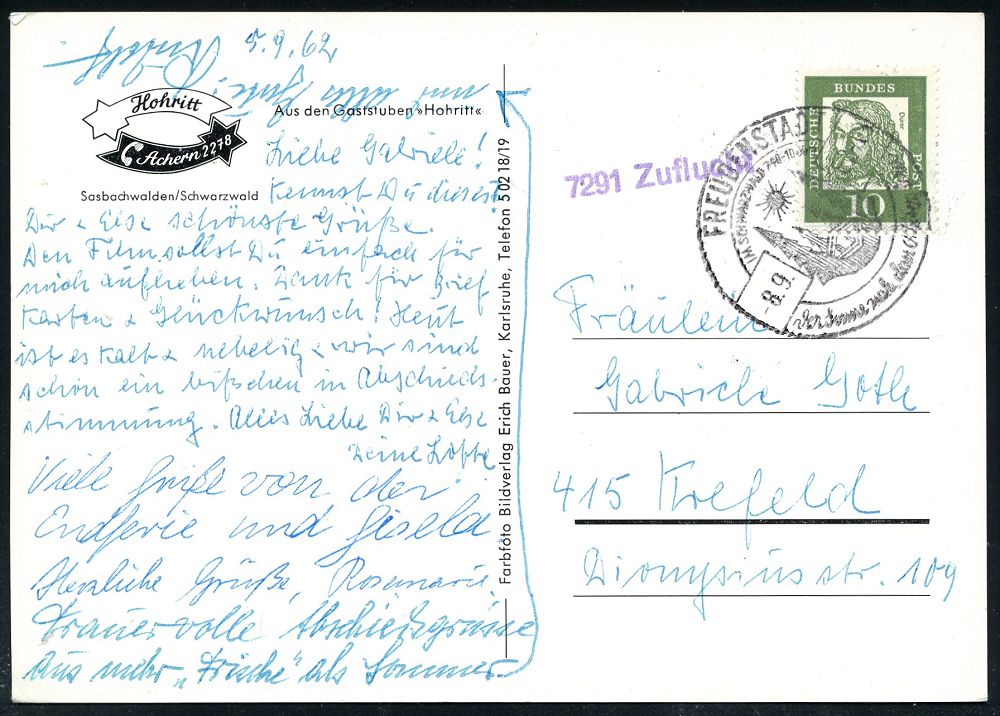 5.9.62
Hohritt
Achern 2278
Sasbachwalden/Schwarzwald
Aus den Gaststuben »Hohritt«
Liebe Gabriele!
Kennst Du dieses?
Dir & Else schönste Grüße.
Den Film sollst Du einfach für
mich aufheben. Dank für Brief
Karten & Glückwunsch! Heut
ist es kalt & nebelig & wir sind
schon ein bißchen in Abschieds-
stimmung. Alles Liebe Dir & Else
Deine Lotte
Viele Grüße von der
und Gisela
Herzliche Grüße, Rosemarie
Trauervolle Abschiedsgrüsse
aus mehr „Frische“ als Sommer
und alles Gute!
Rudolf
Farbfoto Bildverlag Erich Bauer, Karlsruhe, Telefon 5 02 18/19
7291 Zuflucht
FREUDENSTADT
IM SCHWARZWALD 740-10
8.9.
DEUTSCHE
BUNDES
POST
Dürer
10
Fräulein
Gabriele Gothe
415 Krefeld
Dionysiusstr. 109